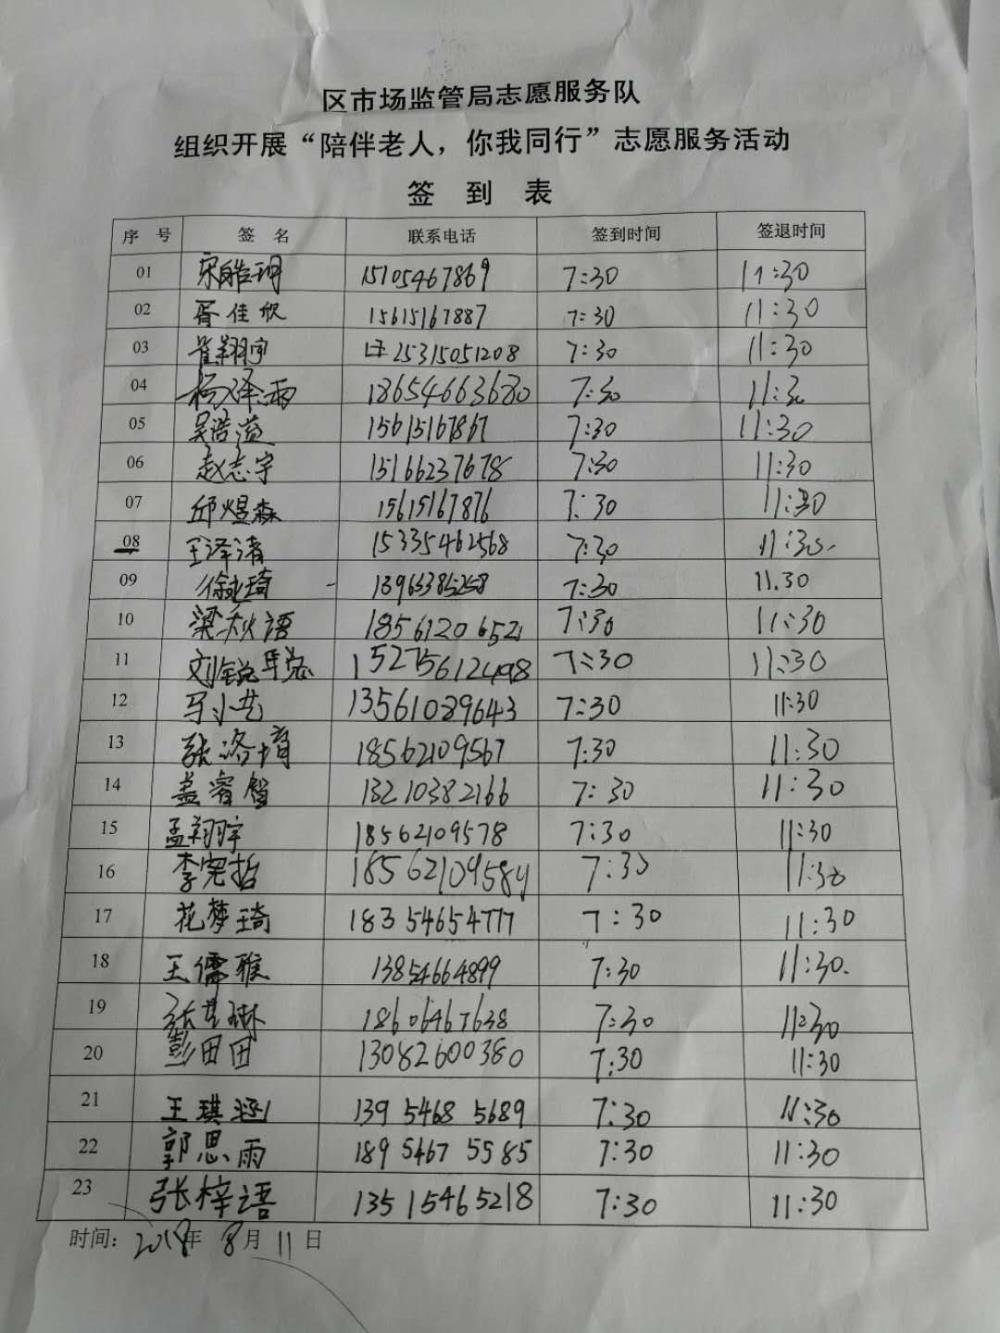 区市场监管局志愿服务队
组织开展“陪伴老人，你我同行”志愿服务活动
签 到 表
序 号 签 名 联系电话 签到时间 签退时间
01 宋皓珂 15105467869 7:30 11:30
02 胥佳欣 15615167887 7:30 11:30
03 崔翔宇 25315051208 7:30 11:30
04 杨泽雨 18654663680 7:30 11:30
05 吴浩溢 15615167867 7:30 11:30
06 赵志宇 15166237678 7:30 11:30
07 邱煜森 15615167876 7:30 11:30
08 王泽渚 15335462568 7:30 11:30.
09 徐 琦 13963385258 7:30 11.30
10 梁秋语 18561206521 7:30 11:30
11 刘锐 15275612498 7:30 11:30
12 马小艺 13561089643 7:30 11:30
13 张洛堉 18562109567 7:30 11:30
14 盖睿智 13210382166 7:30 11:30
15 孟翔宇 18562109578 7:30 11:30
16 李宪哲 18562109584 7:30 11:30
17 花梦琦 18354654777 7:30 11:30
18 王儒雅 13854664899 7:30 11:30.
19 张艺琳 18606467638 7:30 11:30
20 彭田田 13082600380 7:30 11:30
21 王琪涵 139 5468 5689 7:30 11:30
22 郭思雨 189 5467 5585 7:30 11:30
23 张梓语 13515465218 7:30 11:30
时间：2018年 8月 11日